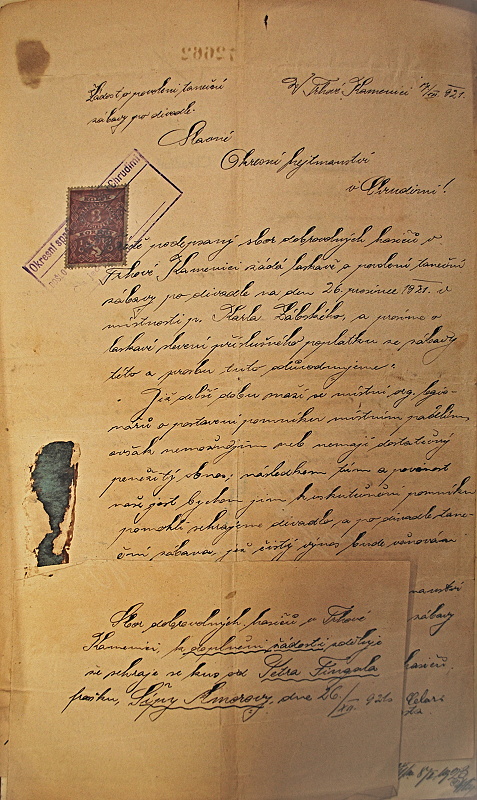 Žádost o povolení taneční
zábavy po divadle.
V Trhové Kamenici 17/XII 921.
Slavné
Okresní hejtmanství
v Chrudimi!
Okresní
Chrudimi
3
podepsaný sbor dobrovolných hasičů v
Trhové Kamenici žádá laskavě o povolení taneční
zábavy po divadle na den 26. prosince 1921. v
místnosti p. Karla Zábského, a prosíme o
laskavé slevení příslušného poplatku ze zábavy
této a prosbu tuto důvodňujeme:
Již delší dobu snaží se místní org. legio-
nářů o postavení pomníku místním padlým,
ovšak nemožným neb nemají dostatečný
peněžitý obnos, následkem tím a povinost
naše jest bychom jim k uskutečnění pomníku
pomohli sehrajeme divadlo, a po divadle tane-
ční zábava, jež čistý výnos bude věnován
zábavy
hasičů
Sbor dobrovolných hasičů v Trhové
Kamenici, k doplnění žádosti sděluje
že sehraje se kus od Petra Fingala
frašku, Šípy Amorovy, dne 26/XII 921